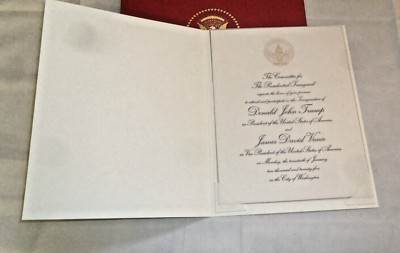 The Committee for
The Presidential Inaugural
requests the honor of your presence
to attend and participate in the Inauguration of
Donald John Trump
as President of the United States of America
and
James David Vance
as Vice President of the United States of America
on Monday, the twentieth of January
two thousand and twenty five
in the City of Washington